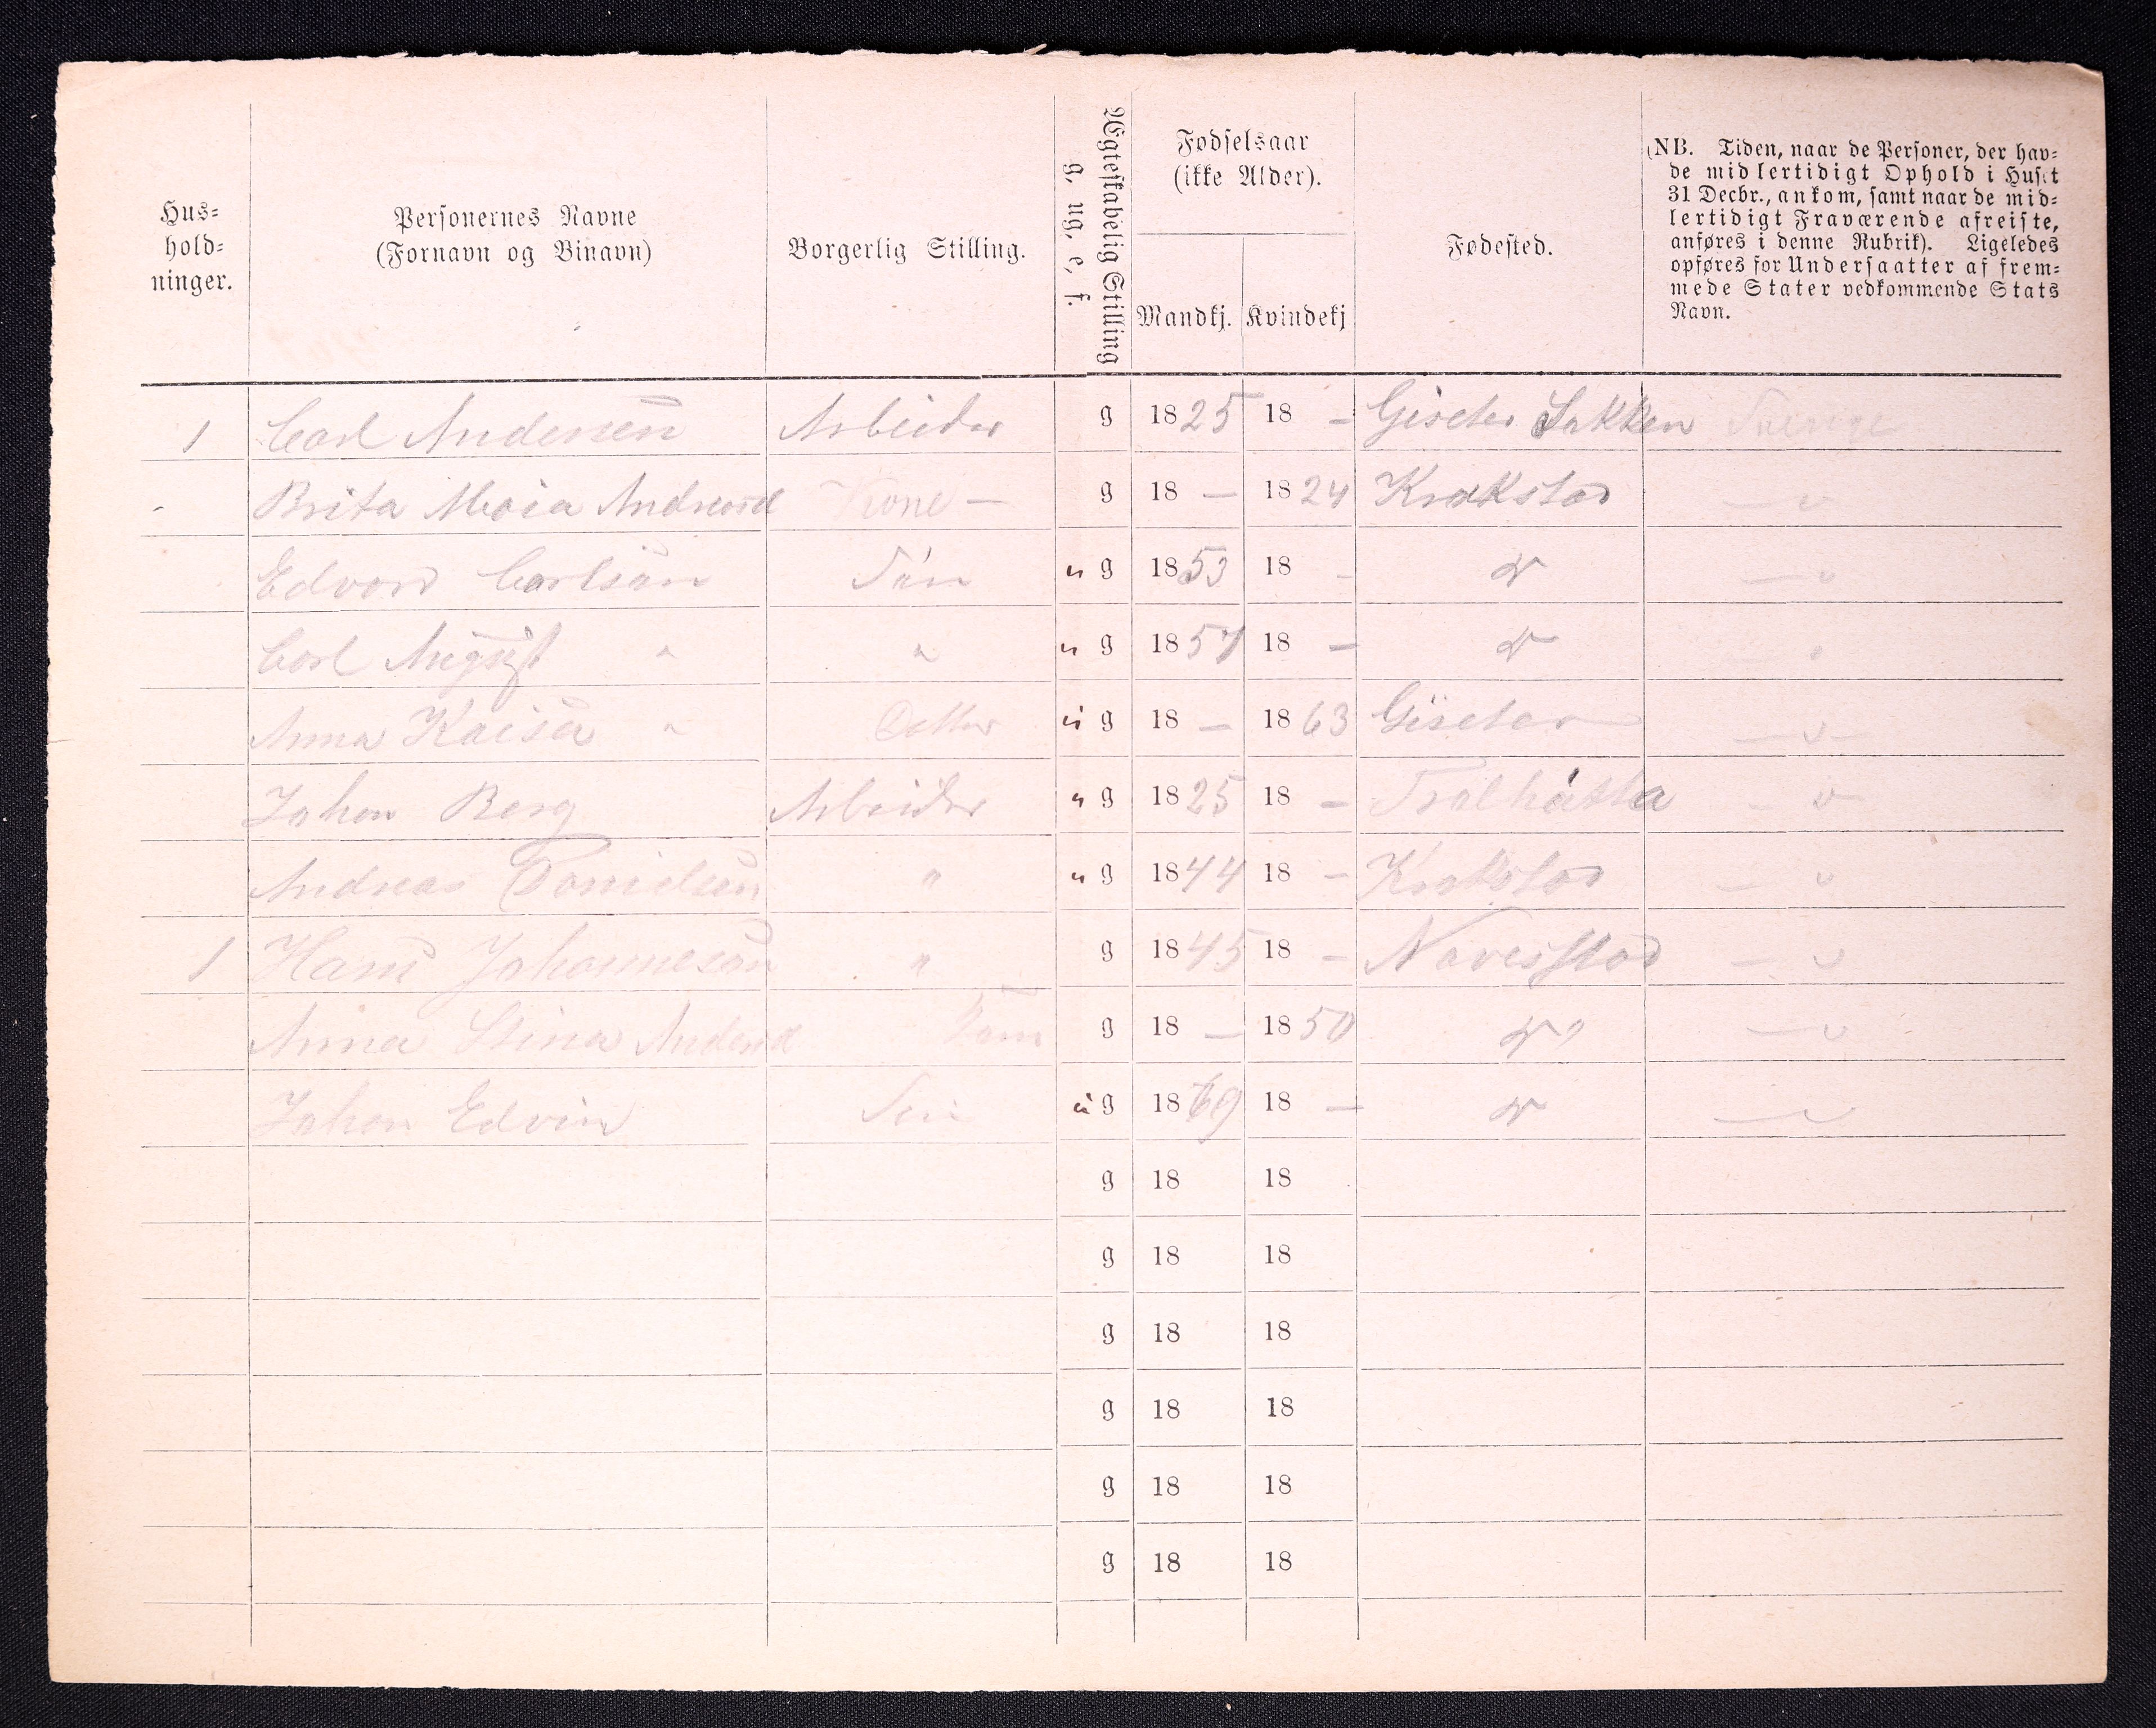 Hus=
hold=
ninger.
Personernes Navne
(Fornavn og Binavn)
Borgerlig Stilling.
Ægteskabelig Stilling
g. ug. e. f.
Fødselsaar
(ikke Alder).
Mandkj. Kvindekj
Fødested.
(NB. Tiden, naar de Personer, der hav=
de midlertidigt Ophold i Huset
31 Decbr., ankom, samt naar de mid=
lertidigt Fraværende afreiste,
anføres i denne Rubrik). Ligeledes
opføres for Undersaatter af frem=
mede Stater vedkommende Stats
Navn.
1 Carl Andersen Arbeider g 1825 18 - Sverige
Brita Maia Kone - g 18 - 1824 Krokstad - " -
Edvard Carlsen Sön u g 1853 18 - " - "
Carl August " " u g 1857 18 - " - "
Anna Kaisa " Datter u g 18 - 1863 - " -
Johan Berg Arbeider u g 1825 18 - Trolhätta - "
Andreas Danielsen " u g 1844 18 - Krokstad - "
1 Hans Johannesen " g 1845 18 - Navesstad - "
Anna Stina g 18 - 1850 " - "
Johan Edvin Sön u g 1869 18 - " - "
g 18 18
g 18 18
g 18 18
g 18 18
g 18 18
g 18 18